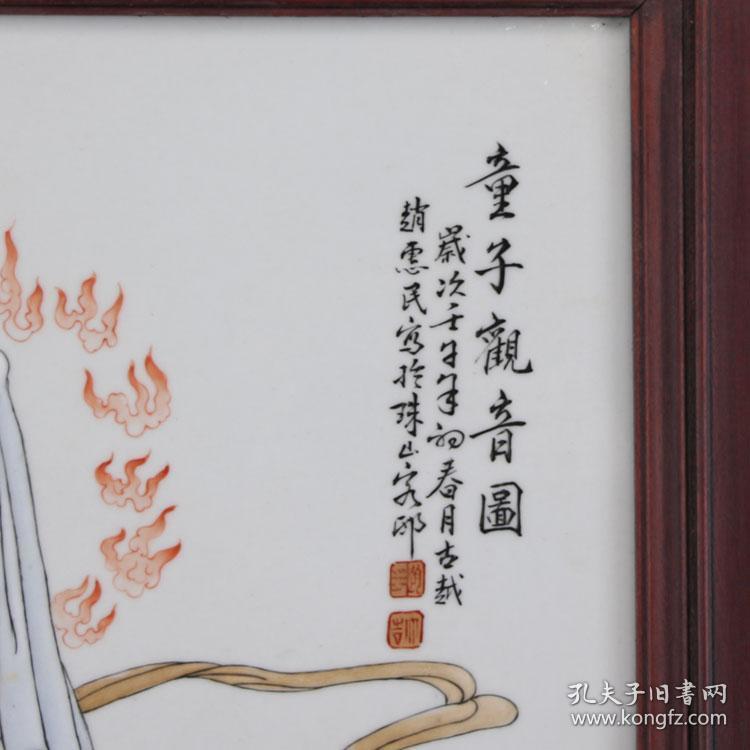 童子觀音圖
歲次壬午年初春月古越
趙惠民寫於珠山客邸
孔夫子旧書网
www.kongfz.com